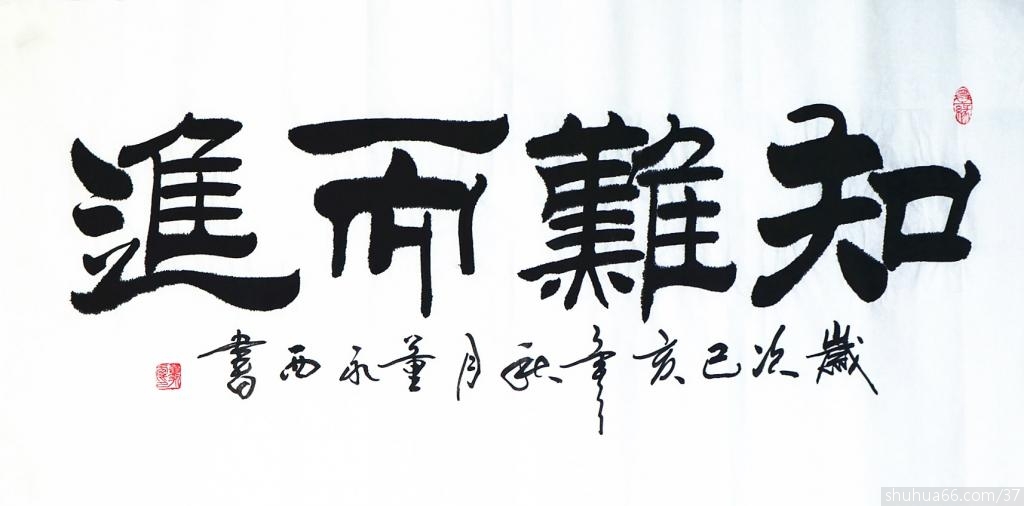 知難而進
歲次己亥年秋月董永西書
shuhua66.com/37